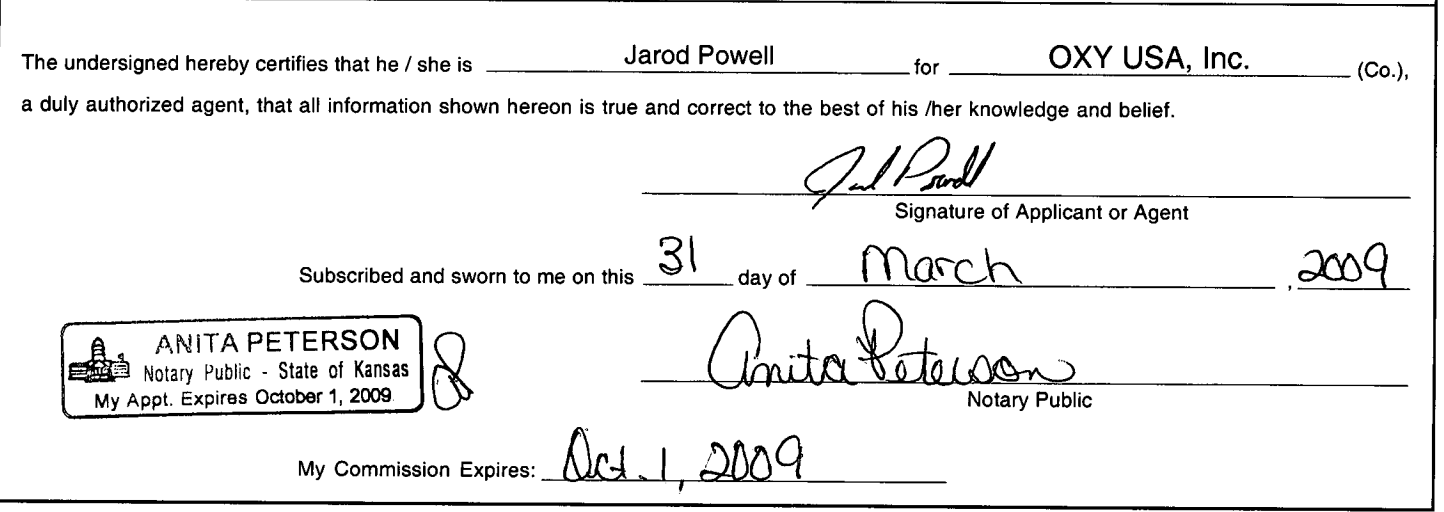 The undersigned hereby certifies that he / she is Jarod Powell for OXY USA, Inc. (Co.),
a duly authorized agent, that all information shown hereon is true and correct to the best of his /her knowledge and belief.
Jard Powell
Signature of Applicant or Agent
Subscribed and sworn to me on this 31 day of March , 2009
ANITA PETERSON
Notary Public - State of Kansas
My Appt. Expires October 1, 2009
Anita Peterson
Notary Public
My Commission Expires: Oct. 1, 2009